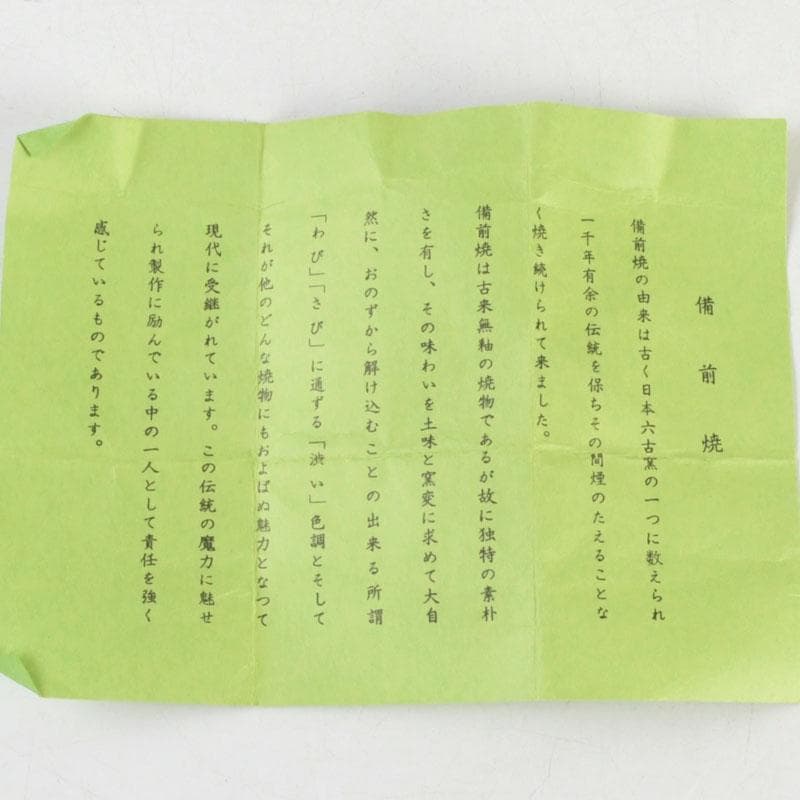 備前焼
備前焼の由来は古く日本六古窯の一つに数えられ
一千年有余の伝統を保ちその間煙のたえることな
く焼き続けられて来ました。
備前焼は古来無釉の焼物であるが故に独特の素朴
さを有し、その味わいを土味と窯変に求めて大自
然に、おのずから解け込むことの出来る所謂
「わび」「さび」に通ずる「渋い」色調とそして
それが他のどんな焼物にもおよばぬ魅力となつて
現代に受継がれています。この伝統の魔力に魅せ
られ製作に励んでいる中の一人として責任を強く
感じているものであります。